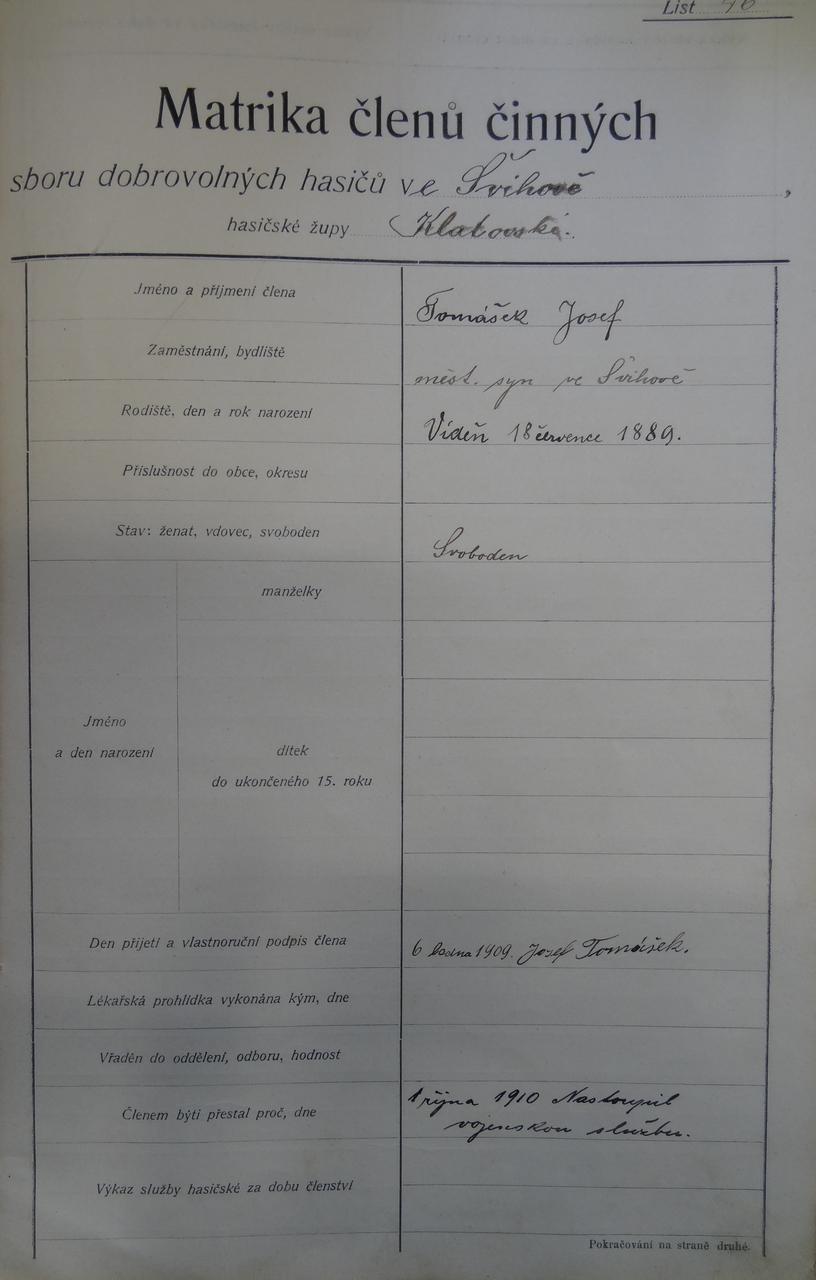 List 46
Matrika členů činných
sboru dobrovolných hasičů ve Švihově,
hasičské župy Klatovské.
Jméno a příjmení člena Tomášek Josef
Zaměstnání, bydliště měst. syn ve Švihově
Rodiště, den a rok narození Vídeň 18 července 1889.
Příslušnost do obce, okresu
Stav: ženat, vdovec, svoboden Svoboden
manželky
Jméno
a den narození
dítek
do ukončeného 15. roku
Den přijetí a vlastnoruční podpis člena 6 ledna 1909. Josef Tomášek.
Lékařská prohlídka vykonána kým, dne
Vřaděn do oddělení, odboru, hodnost
Členem býti přestal proč, dne 1 října 1910 Nastoupil
vojenskou službu.
Výkaz služby hasičské za dobu členství
Pokračování na straně druhé.